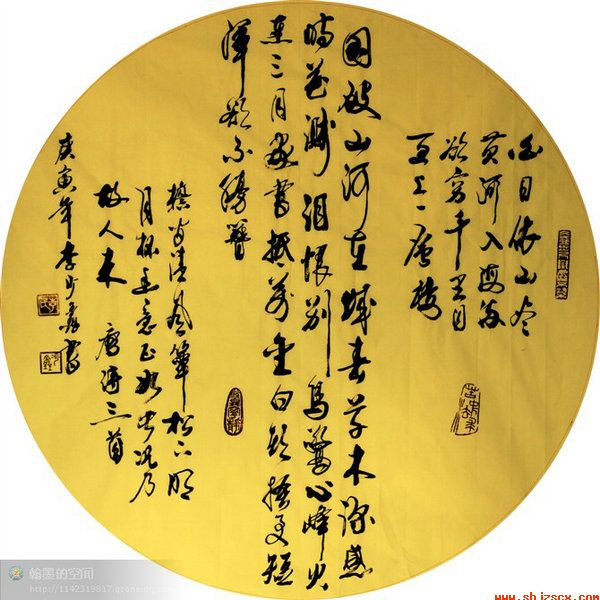 白日依山尽
黄河入海流
欲穷千里目
更上一层楼
国破山河在城春草木深感
时花溅泪恨别鸟惊心烽火
连三月家書抵万金白头搔更短
浑欲不勝簪
檐间清風簟松下明
月杯幽意正如此况乃
故人来 唐诗三首
庚寅年李少书
翰墨的空间
http://1142319817.qzone.qq.com
www.shjzscx.com